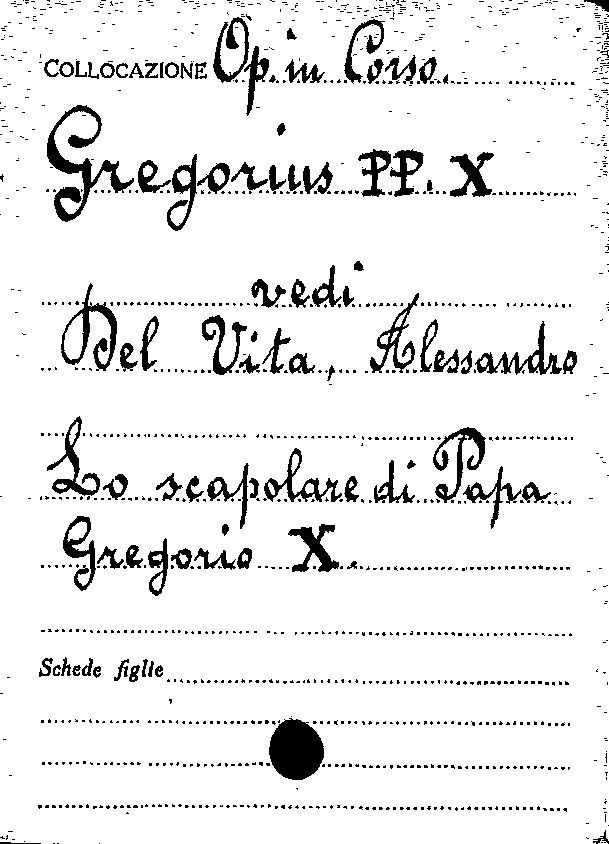 COLLOCAZIONE Op. in Corso.
Gregorius PP. X
vedi
Del Vita, Alessandro
Lo scapolare di Papa
Gregorio X.
Schede figlie